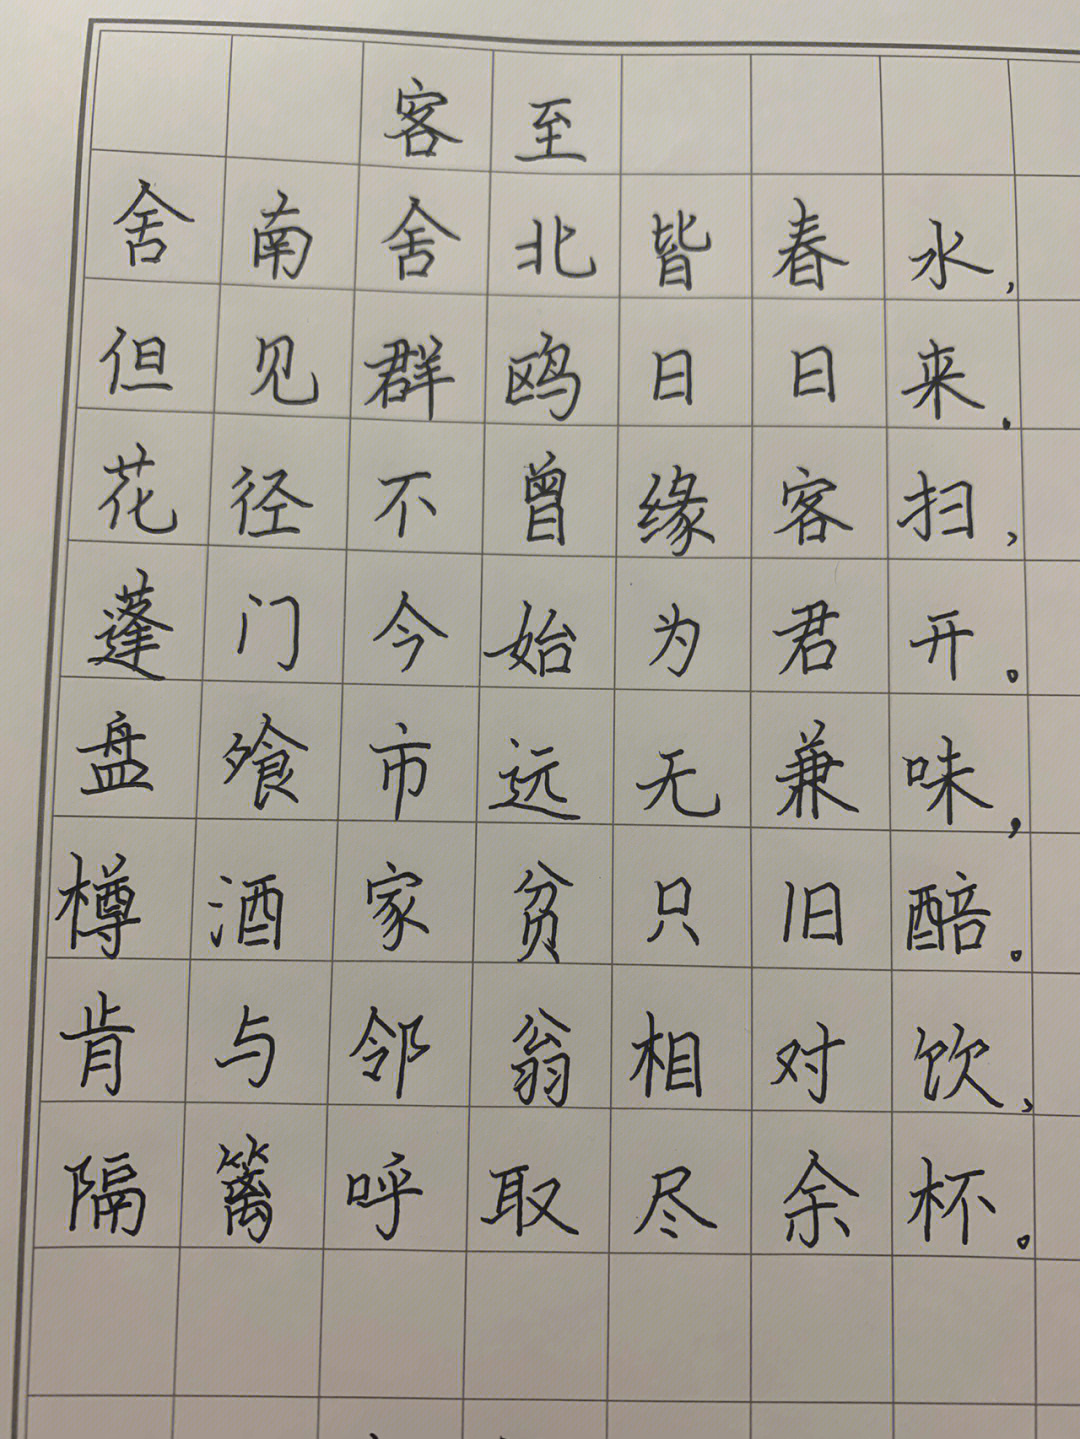 客至
舍南舍北皆春水,
但见群鸥日日来.
花径不曾缘客扫,
蓬门今始为君开。
盘飧市远无兼味,
樽酒家贫只旧醅。
肯与邻翁相对饮、
隔篱呼取尽余杯。